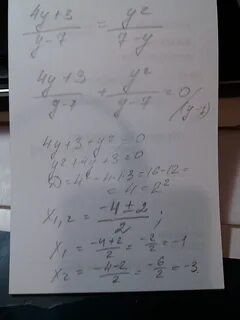 4y+3/y-7 = y²/7-y
4y+3/y-7 + y²/y-7 = 0 /(y-7)
4y+3+y²=0
y²+4y+3=0
D=4²-4·1·3=16-12=
=4=2²
X1,2 = -4±2/2 ;
X1 = -4+2/2 = -2/2 = -1
X2 = -4-2/2 = -6/2 = -3.